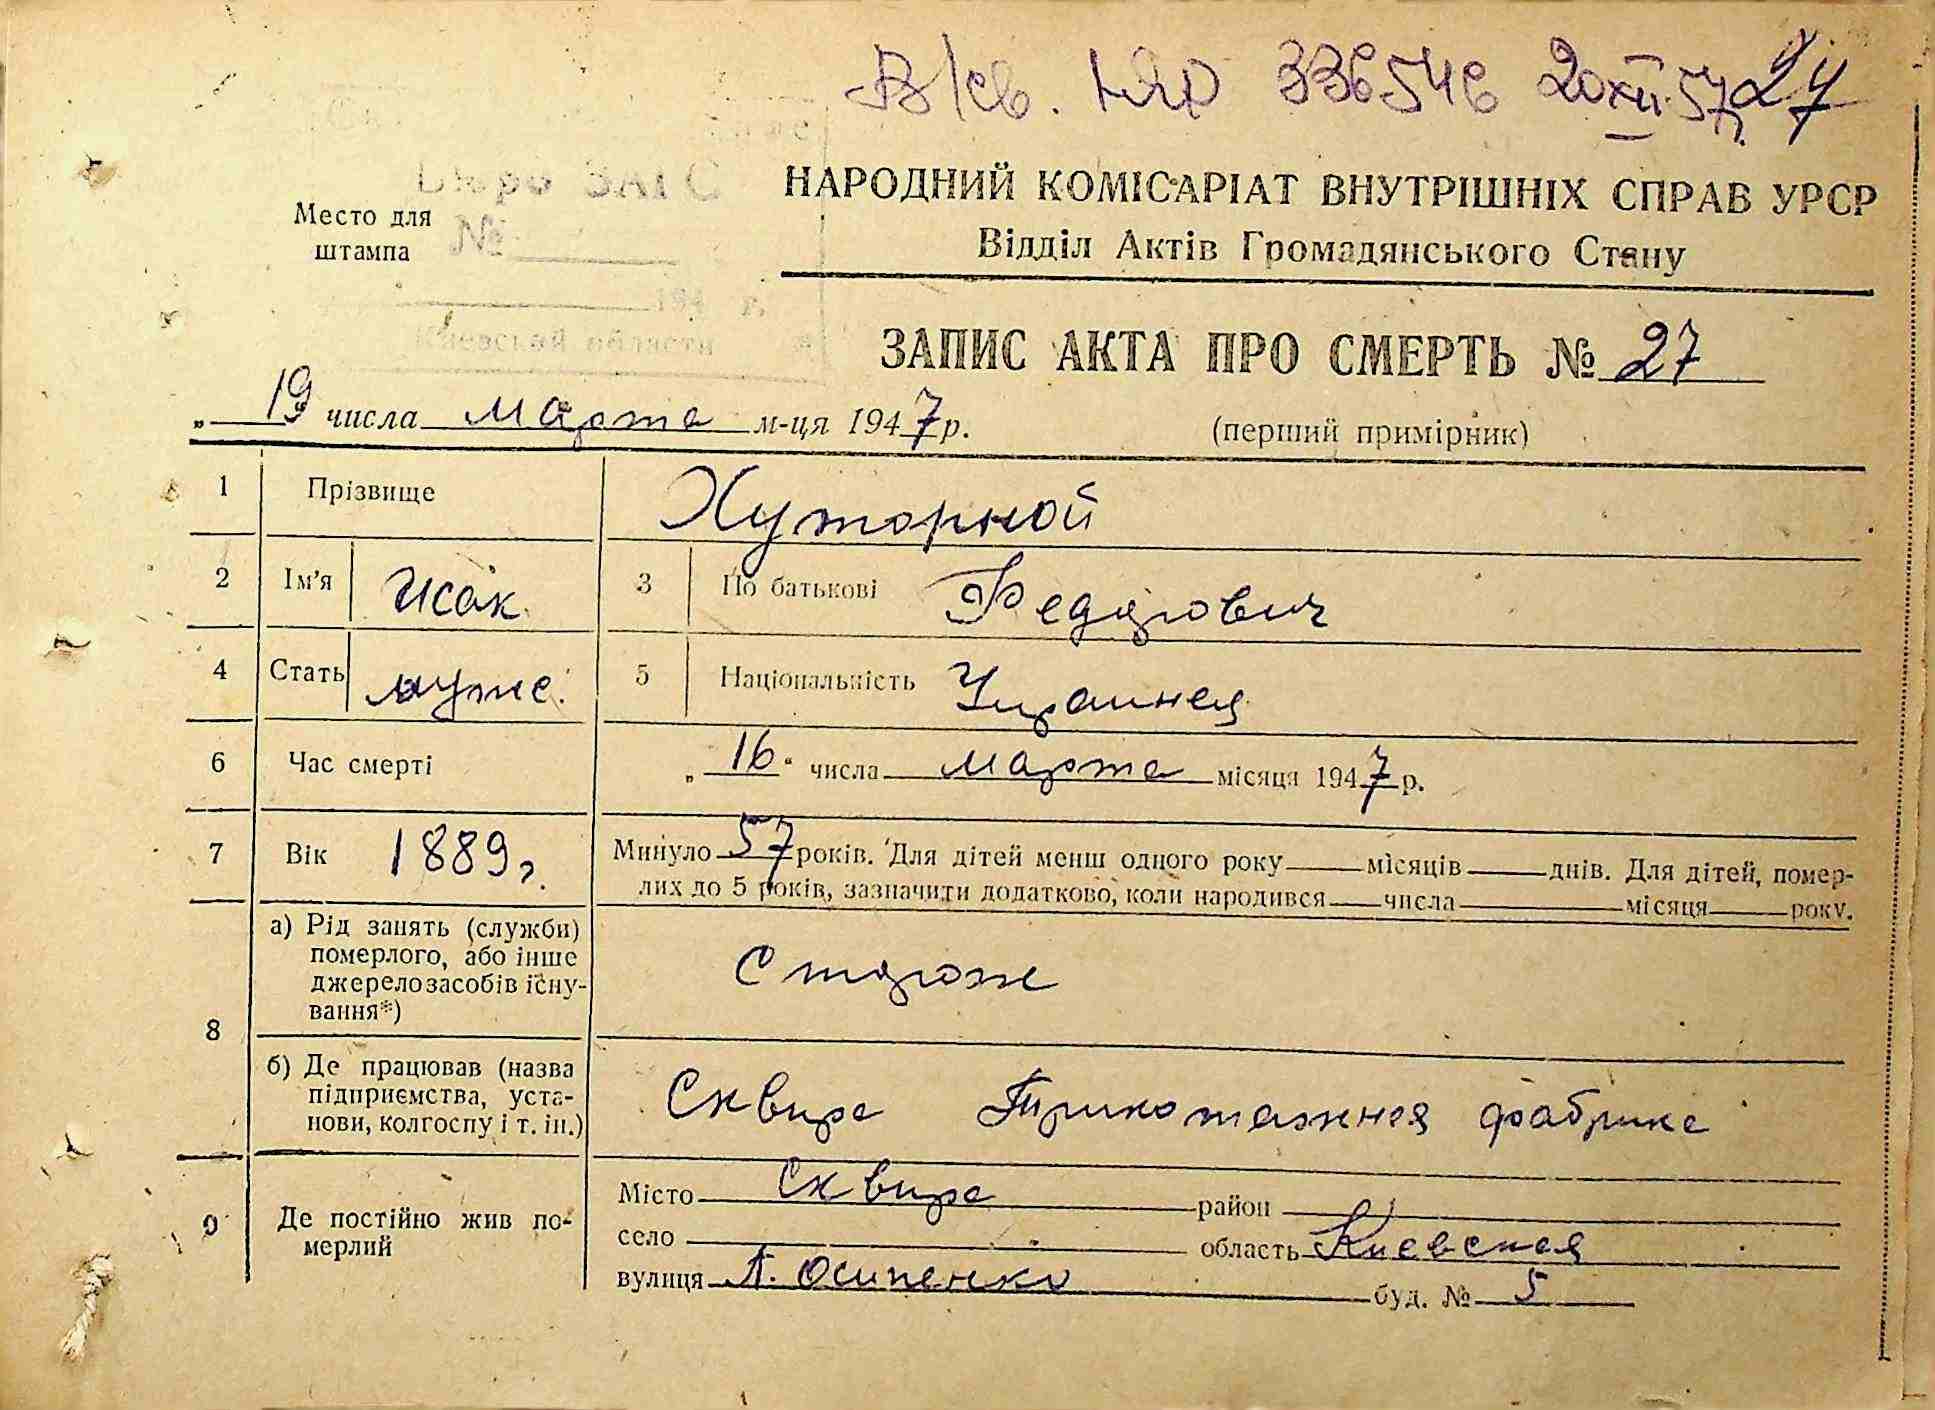 В/св. 336546 20 XII 57 27
Бюро ЗАГС
Место для
штампа
№
194 г.
Киевской области
НАРОДНИЙ КОМІСАРІАТ ВНУТРІШНІХ СПРАВ УРСР
Відділ Актів Громадянського Стану
ЗАПИС АКТА ПРО СМЕРТЬ № 27
„ 19 числа марта м-ця 1947 р. (перший примірник)
1 Прізвище Хуторной
2 Ім'я Исак 3 По батькові Федорович
4 Стать муже. 5 Національність Украинец
6 Час смерті „ 16 “ числа марта місяця 1947 р.
7 Вік 1889 г. Минуло 57 років. Для дітей менш одного року місяців днів. Для дітей, помер-
лих до 5 років, зазначити додатково, коли народився числа місяця року.
8
а) Рід занять (служби)
померлого, або інше
джерело засобів існу-
вання*)
Сторож
б) Де працював (назва
підприємства, уста-
нови, колгоспу і т. ін.)
Сквира Трикотажная фабрика
9 Де постійно жив по-
мерлий
Місто Сквира район
село область Киевская
вулиця П. Осипенко буд. № 5